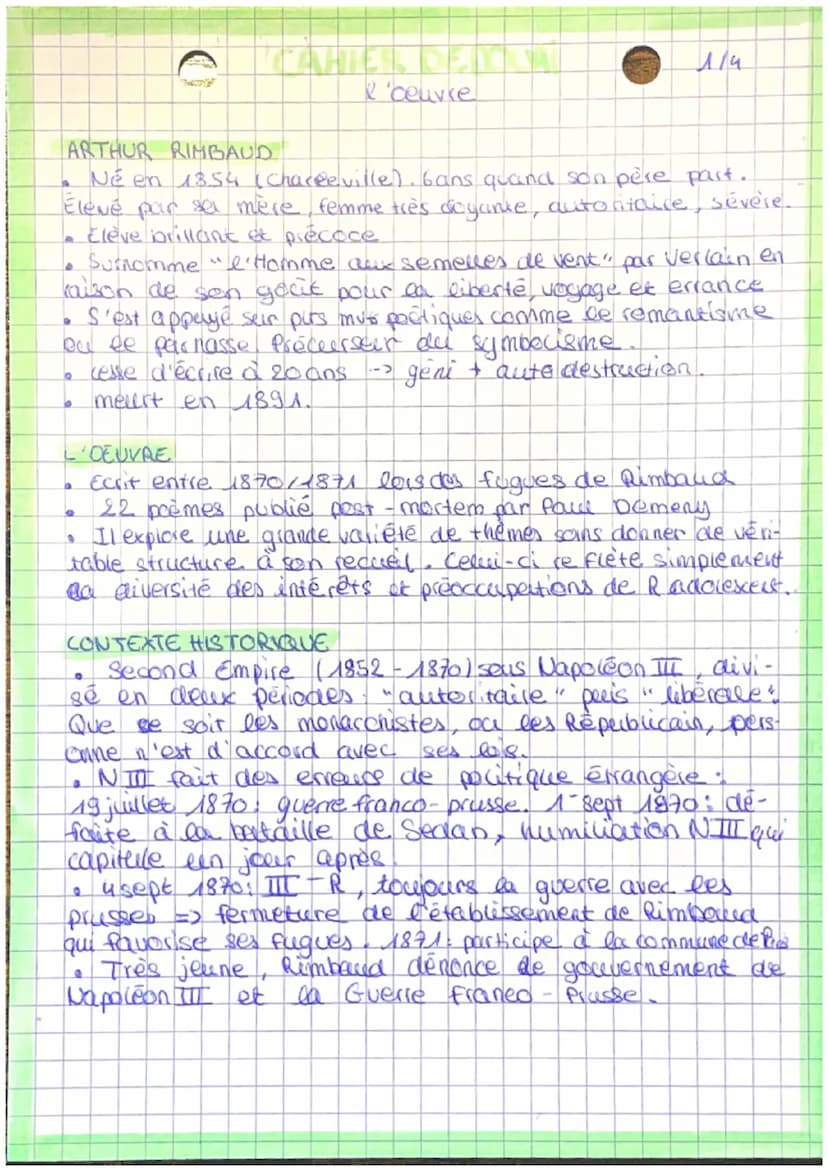 CAHIER DE DOUAI
1/4
l'œuvre
ARTHUR RIMBAUD
• Né en 1854 (Charleeville). 6ans quand son père part.
Élevé par sa mère, femme très croyante, autoritaire, sévère.
• Élève brillant et précoce
• Surnomme "l'Homme aux semelles de vent" par Verlain en
raison de son goût pour la liberté, voyage et errance
• S'est appuyé sur plrs mvts poétiques comme le romantisme
ou le parnasse. Précurseur du symbolisme.
• cesse d'écrire à 20ans --> géni + auto destruction.
• meurt en 1891.
L'OEUVRE
• Ecrit entre 1870/1871 lors des fugues de Rimbaud
• 22 poèmes publié post-mortem par Paul Demeny
• Il explore une grande variété de thèmes sans donner de véri-
table structure à son recueil. Celui-ci reflète simplement
la diversité des intérêts et préoccupations de R adolescent.
CONTEXTE HISTORIQUE
• Second Empire (1852-1870) sous Napoléon III, divi-
sé en deux périodes: "autoritaire" puis "libérale":
Que ce soit les monarchistes, ou les Républicain, pers-
onne n'est d'accord avec ses lois.
• N III fait des erreurs de politique étrangère:
19 juillet 1870: guerre franco-prusse. 1er sept 1870: dé-
faite à la bataille de Sedan, humiliation N III qui
capitule un jour après.
• 4 sept 1870: III - R, toujours la guerre avec les
prusses => fermeture de l'établissement de Rimbaud
qui favorise ses fugues. 1871: participe à la commune de Paris
• Très jeune, Rimbaud dénonce le gouvernement de
Napoléon III et la Guerre Franco-Prusse.